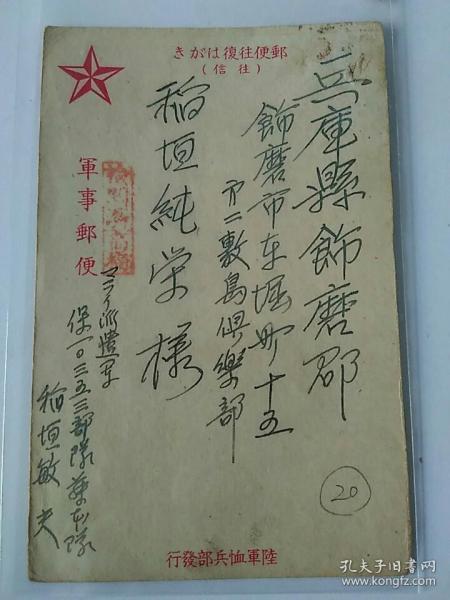 郵便往復はがき
（往信）
兵庫縣飾磨郡
飾磨市東堀町十五
第二敷島倶樂部
稲垣純栄様
軍事郵便
マライ派遣軍
保一〇三五三部隊
稲垣敏夫
20
陸軍恤兵部發行
孔夫子旧书网
www.kongfz.com